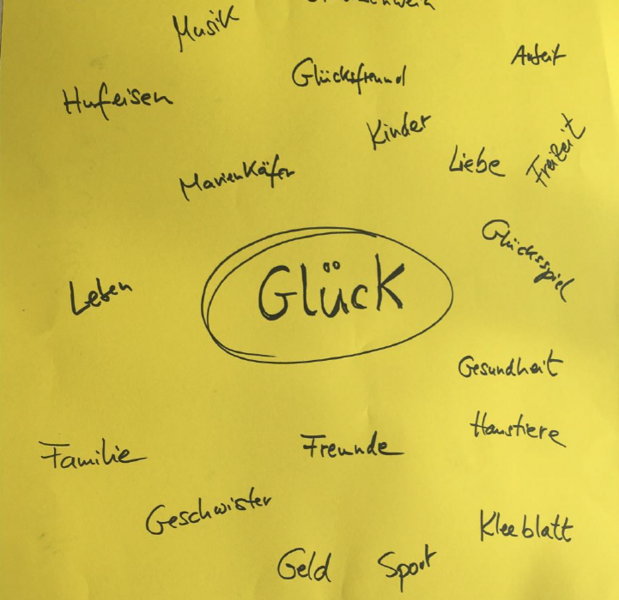 Musik
Glücksfreund
Hufeisen
Kinder
Liebe
Freizeit
Marienkäfer
Glücksspiel
Leben
Glück
Gesundheit
Haustiere
Familie
Freunde
Geschwister
Kleeblatt
Geld
Sport